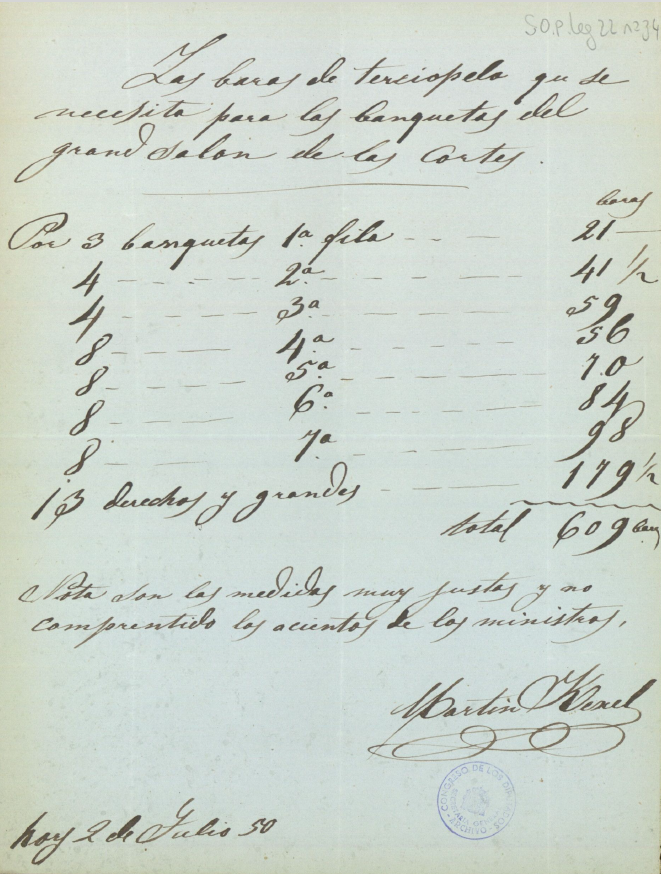 S.O.P. leg 22 nº 34
Las baras de terciopelo qu se
necesita para las banquetas del
grand Salon de las Cortes.
baras
Por 3 banquetas 1ª fila 21
4 2ª 41 1/2
4 3ª 59
8 4ª 56
8 5ª 70
8 6ª 84
8 7ª 98
13 derechos y grandes 179 1/2
total 609 bara
Nota son las medidas muy justas y no
comprentido los acientos de los ministros.
Martin
CONGRESO DE LOS DIPUTADOS
ARCHIVO
hoy 2 de Julio 50